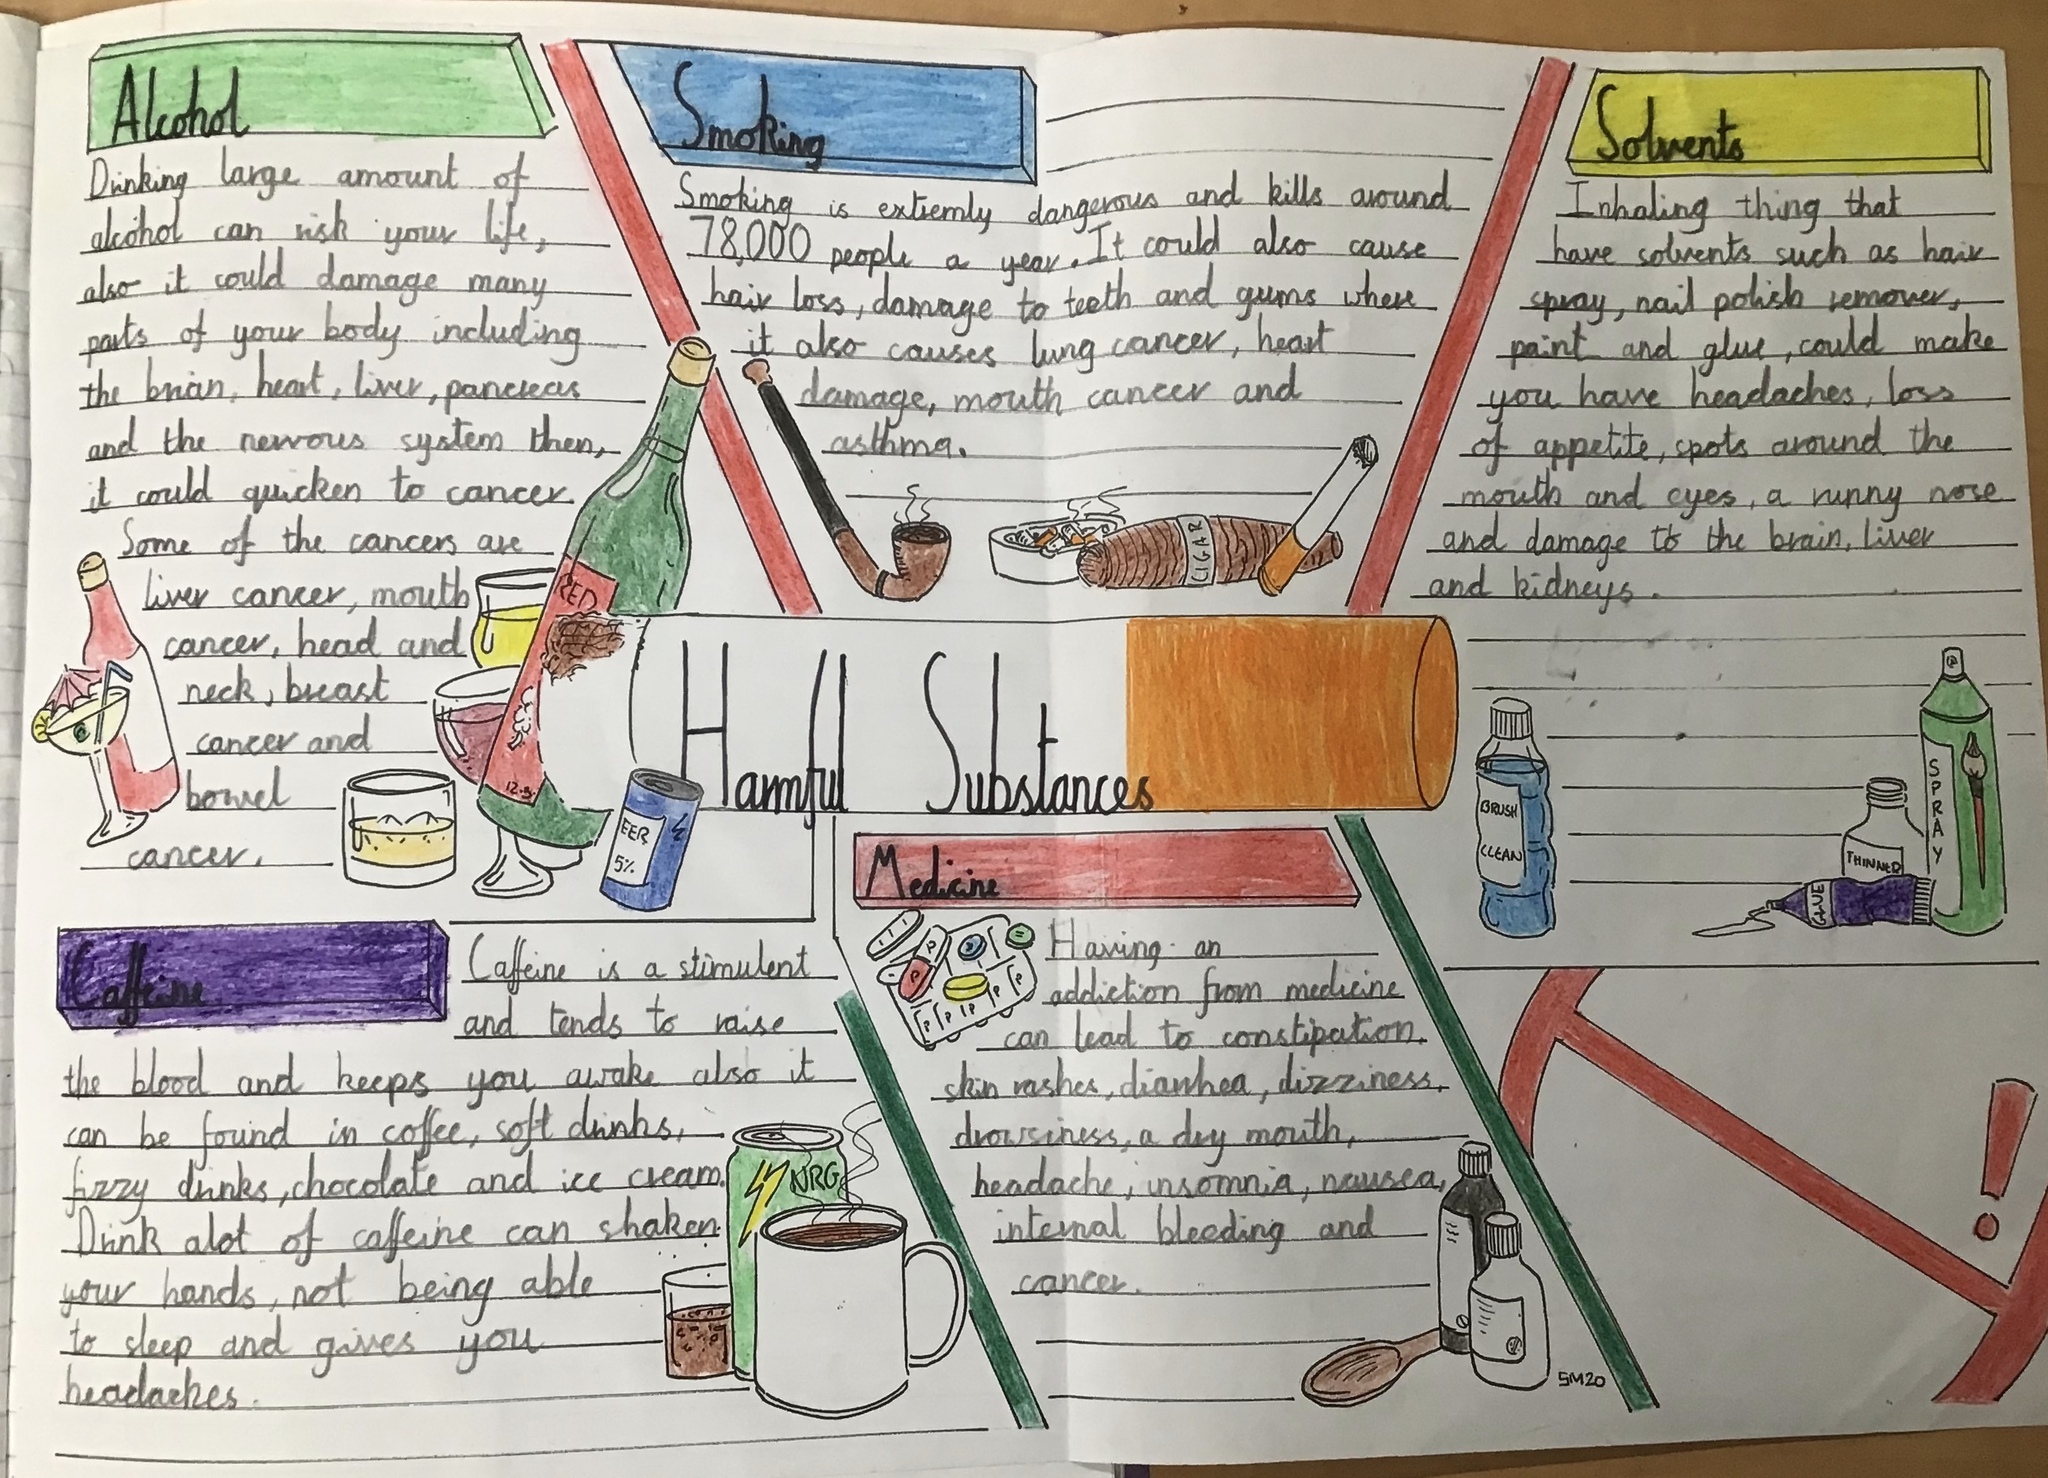 Alcohol
Drinking large amount of
alcohol can risk your life,
also it could damage many
parts of your body including
the brian, heart, liver, pancreas
and the nervous system then,
it could quicken to cancer.
Some of the cancers are
liver cancer, mouth
cancer, head and
neck, breast
cancer and
bowel
cancer.
RED
12.5%
EER
5%
Smoking
Smoking is extremly dangerous and kills around
78,000 people a year. It could also cause
hair loss, damage to teeth and gums where
it also causes lung cancer, heart
damage, mouth cancer and
asthma.
CIGAR
Solvents
Inhaling thing that
have solvents such as hair
spray, nail polish remover,
paint and glue, could make
you have headaches, loss
of appetite, spots around the
mouth and eyes, a runny nose
and damage to the brain, liver
and kidneys.
BRUSH
CLEAN
THINNER
GLUE
SPRAY
Harmful Substances
Caffeine
Caffeine is a stimulent
and tends to raise
the blood and keeps you awake also it
can be found in coffee, soft drinks,
fizzy drinks, chocolate and ice cream.
Drink alot of caffeine can shaken
your hands, not being able
to sleep and gives you
headaches.
NRG
Medicine
Having an
addiction from medicine
can lead to constipation,
skin rashes, diarrhea, dizziness,
drowsiness, a dry mouth,
headache, insomnia, nausea,
internal bleeding and
cancer.
P
P
P
P
P
P
SM20
!